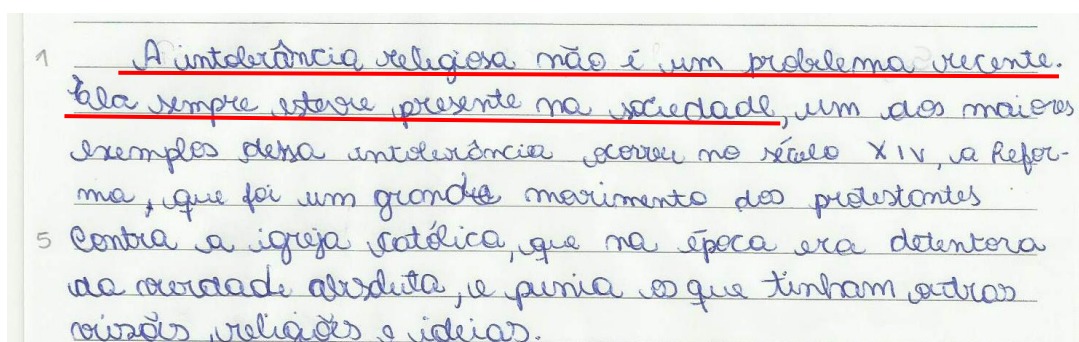 1 A intolerância religiosa não é um problema recente.
Ela sempre esteve presente na sociedade, um dos maiores
exemplos dessa intolerância ocorreu no século XIV, a Refor-
ma, que foi um grande movimento dos protestantes
5 Contra a igreja católica, que na época era detentora
da verdade absoluta, e punia os que tinham outras
visões, religiões e ideias.